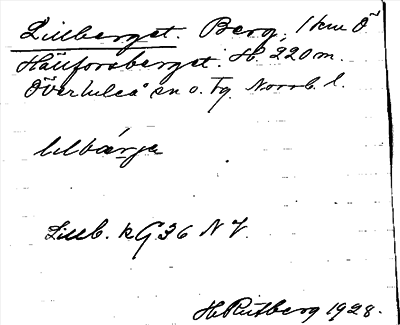 Lillberget. Berg, 1 km Ö
Hällforsberget. H. 220 m.
Överluleå sn o. tg. Norrb. l.
lilbärje
Lillb. kG36 NV.
H. Rutberg 1928.